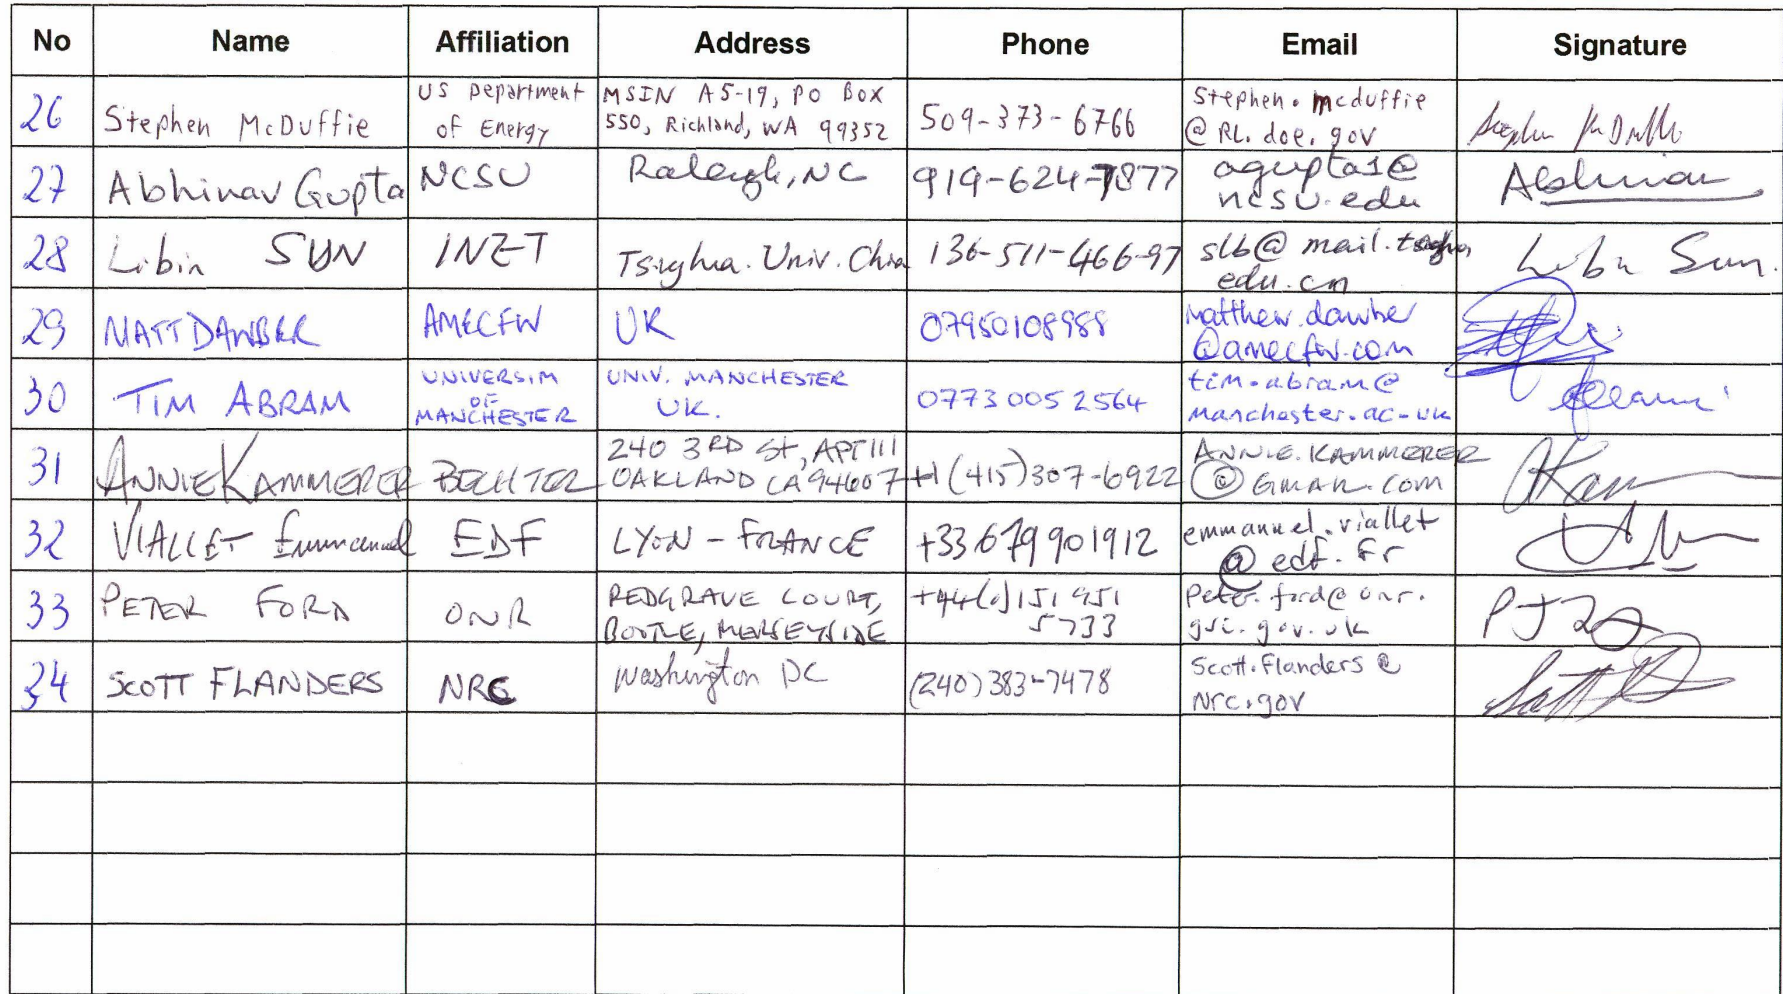 No Name Affiliation Address Phone Email Signature
26 Stephen McDuffie US Department of Energy MSIN A5-19, PO Box 550, Richland, WA 99352 509-373-6766 Stephen.mcduffie @RL.doe.gov
27 Abhinav Gupta NCSU Raleigh, NC 919-624-7877 agupta1@ ncsu.edu Abhinav
28 Libin SUN INET Tsinghua. Univ. China 136-511-466-97 slb@mail. edu.cn Libin Sun.
29 MATT DAWBER AMECFW UK 07950108988 matthew.dawber @amecfw.com
30 TIM ABRAM UNIVERSITY OF MANCHESTER UNIV. MANCHESTER UK. 07730052564 tim.abram@ manchester.ac.uk
31 ANNIE KAMMERER BECHTEL 240 3RD St, APT 111 OAKLAND CA 94607 +1(415)307-6922 ANNIE.KAMMERER @GMAIL.COM
32 VIALLET Emmanuel EDF LYON - FRANCE +33 679 901912 emmanuel.viallet @edf.fr
33 PETER FORD ONR REDGRAVE COURT, BOOTLE, MERSEYSIDE +44(0)151 951 5733 Peter.ford@onr. gsi.gov.uk
34 SCOTT FLANDERS NRC Washington DC (240)383-7478 Scott.Flanders@ Nrc.gov